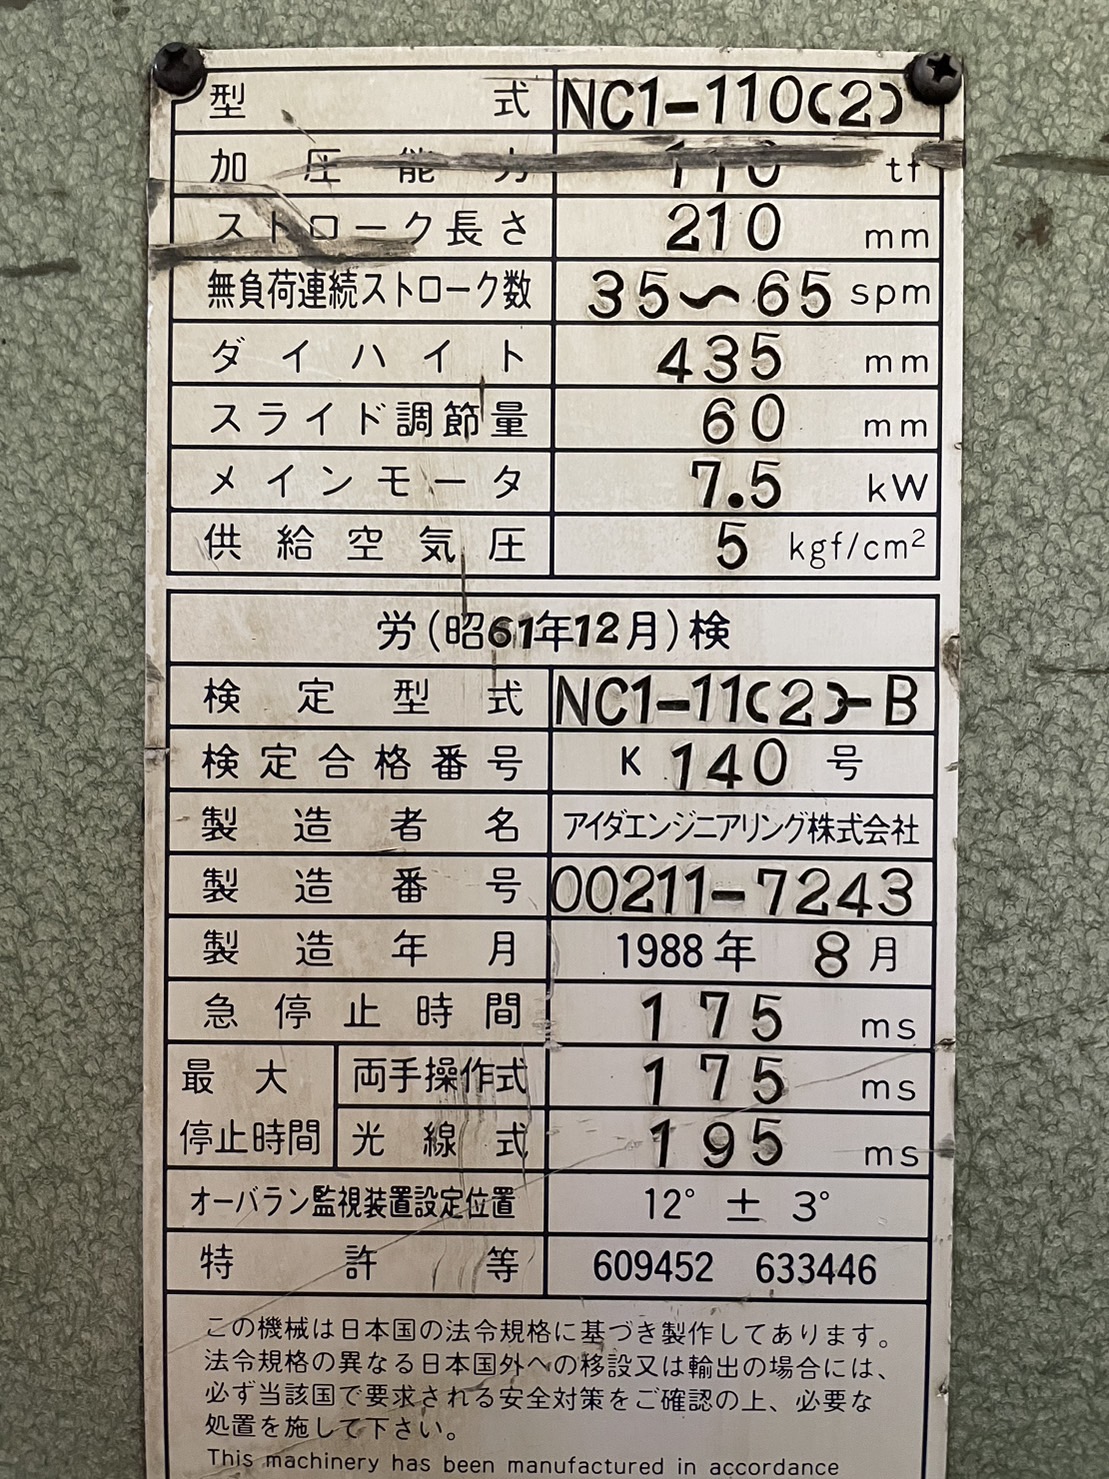 型式 NC1-110(2)
加圧能力 110 tf
ストローク長さ 210 mm
無負荷連続ストローク数 35~65 spm
ダイハイト 435 mm
スライド調節量 60 mm
メインモータ 7.5 kW
供給空気圧 5 kgf/cm²
労(昭61年12月)検
検定型式 NC1-11(2)-B
検定合格番号 K 140 号
製造者名 アイダエンジニアリング株式会社
製造番号 00211-7243
製造年月 1988年 8月
急停止時間 175 ms
最大停止時間 両手操作式 175 ms
光線式 195 ms
オーバラン監視装置設定位置 12° ± 3°
特許等 609452 633446
この機械は日本国の法令規格に基づき製作してあります。
法令規格の異なる日本国外への移設又は輸出の場合には、
必ず当該国で要求される安全対策をご確認の上、必要な
処置を施して下さい。
This machinery has been manufactured in accordance